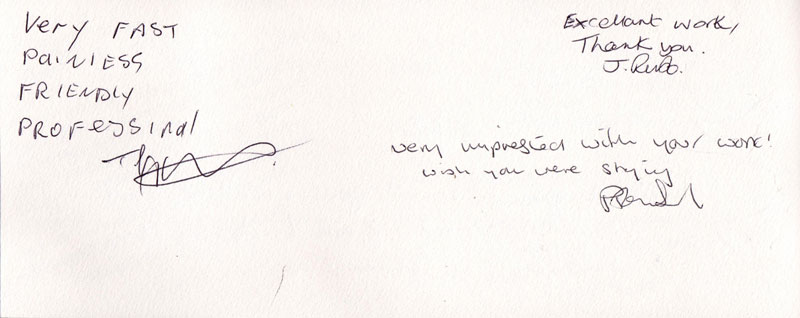 Very FAST
PaiNLESS
FRIENDLY
PROFessinal
Excellant work,
Thank you.
very impressed with your work!
wish you were staying